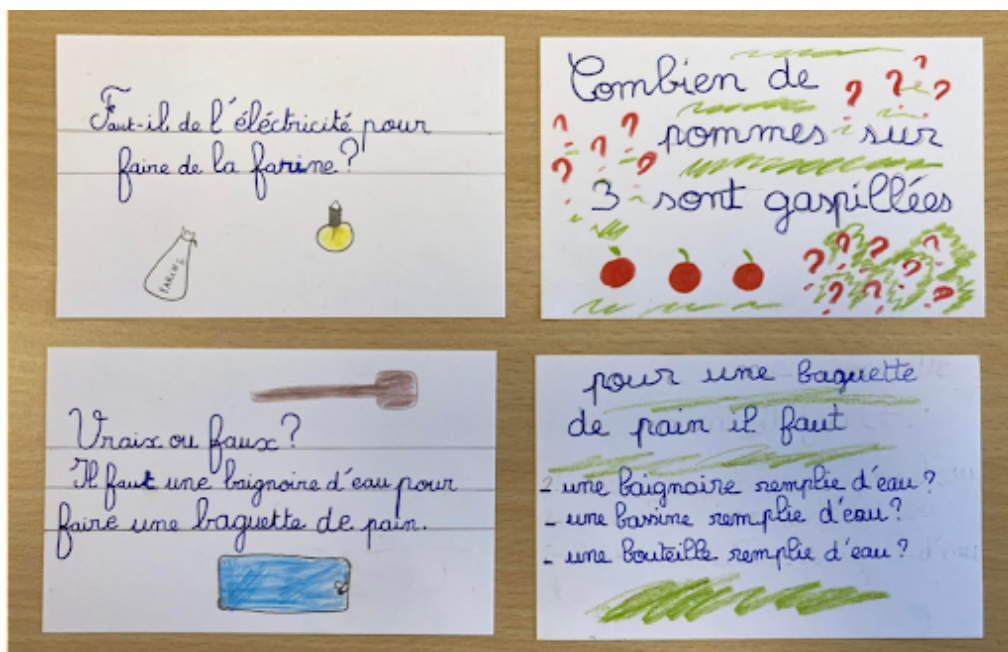 Faut-il de l'éléctricité pour
faire de la farine?
FARINE
Combien de
pommes sur
3 sont gaspillées
? ? ? ? ? ? ? ? ? ? ? ? ? ? ?
Vraix ou faux?
Il faut une baignoire d'eau pour
faire une baguette de pain.
pour une baguette
de pain il faut
- une baignoire remplie d'eau?
- une bassine remplie d'eau?
- une bouteille remplie d'eau?